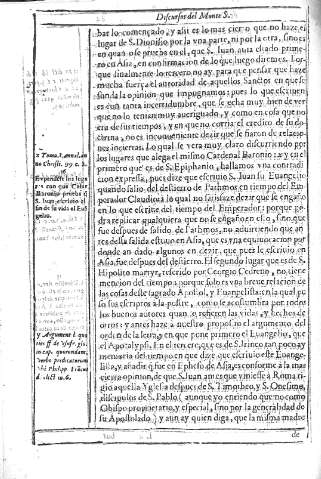 Discursos del Monte S.
bar lo començado, y assi es lo mas cierto que no haze el
lugar de S. Dionisio por la vna parte, ni por la otra, sino es
en quanto se prueba en el, que S. Iuan auia estado prime-
ro en Asia, en confirmacion de lo que luego diremos. Por
que finalmente lo tercero no ay para que pensar que haze
mucha fuerça el autoridad de aquellos Sanctos en que se
funda la opinion que impugnamos: pues lo que escriuen
es con tanta incertidumbre, que se echa muy bien de ver
que no lo tenian muy aueriguado, y como en cosa que no
era de sus tiempos, y en que no corria el credito de su do-
ctrina, no es inconueniente dezir que se fiaron de relacio-
nes inciertas. Lo qual se vera muy claro discurriendo por
los lugares que alega el mismo Cardenal Baronio: x y en el
primero que es de S. Epiphanio, hallamos vna contradi-
cion expressa, pues dize que escriuio S. Iuan su Euangelio
quando salio del destierro de Pathmos en tiempo del Em-
perador Claudio
en lo que escriue del tiempo del Emperador: porque po-
dra replicar qualquiera que no se engaño en el, sino que
fue despues de salido de Pathmos, no aduirtiendo que an-
tes della salida estuuo en Asia, que es vna equiuocacion por
donde an dado algunos en dezir, que pues le escriuio en
Asia, fue despues del destierro. El segundo lugar es de S.
Hipolito martyr, referido por Georgio Cedreno, no tiene
mencion del tiempo: porque solo es vna breue relacion de
las cosas deste sagrado Apostol, y Euangelista: en la qual po
ne sus escriptos a la postre, como se acostumbra por todos
los buenos autores quando refieren las vidas, y hechos de
otros: y antes haze a nuestro proposito el argumento del
orden de la letra, y en que pone primero el Euangelio, que
el Apocalypsi. En el tercero, que es de S. Irineo tan poco ay
memoria del tiempo en que dize que escriuio este Euange-
lio, y añadir que fue en Epheso de Asia, es conforme a la mas
cierta opinion, de que S. Iuan antes que viniesse a Roma ri-
gio aquella Yglesia despues de S. Timotheo, y S. Onesimo,
discipulos de S. Pablo (aunque yo entiendo que no como
Obispo propietario, y especial, sino por la generalidad de
su Apostolado) y aun ay quien diga, que la misma madre
de
x Tomo. 1. annal. an
no Christi. 99. n. 2.
Expendense los luga
res con que Cesar
Baronio prueba
S. Iuan escriuio al
fin de su vida el Euã
gelio.
y Argument. l. quo
tiens ff. de vsufr. gl.
in cap. quorundam,
verbo predicatorum
vbi Philipp.
d. elect. in. 6.